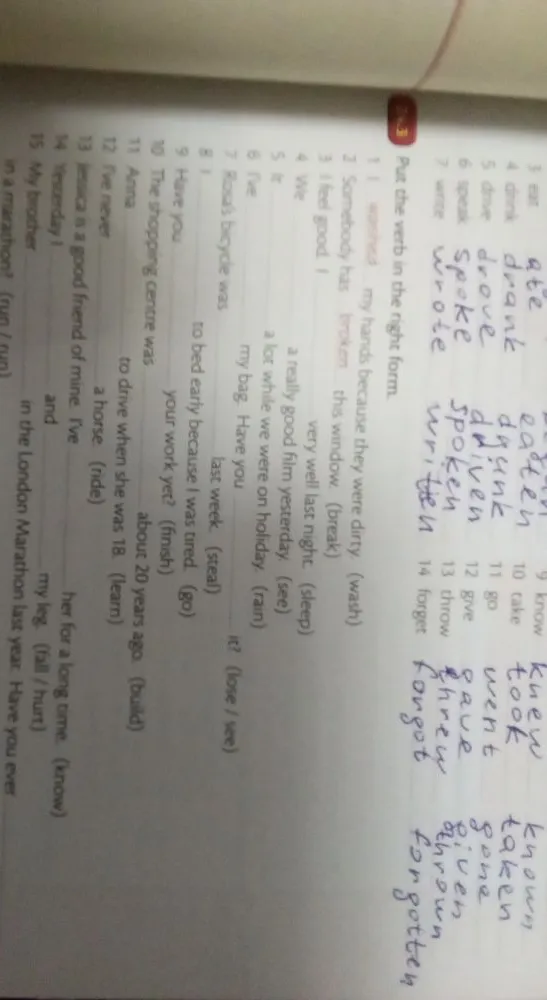 3 eat ate eaten 9 know knew known
4 drink drank drunk 10 take took taken
5 drive drove driven 11 go went gone
6 speak spoke spoken 12 give gave given
7 write wrote written 13 throw threw thrown
14 forget forgot forgotten
Put the verb in the right form.
1 I washed my hands because they were dirty. (wash)
2 Somebody has broken this window. (break)
3 I feel good. I very well last night. (sleep)
4 We a really good film yesterday. (see)
5 It a lot while we were on holiday. (rain)
6 I've my bag. Have you it? (lose / see)
7 Rosa's bicycle was last week. (steal)
8 I to bed early because I was tired. (go)
9 Have you your work yet? (finish)
10 The shopping centre was about 20 years ago. (build)
11 Anna to drive when she was 18. (learn)
12 I've never a horse. (ride)
13 Jessica is a good friend of mine. I've her for a long time. (know)
14 Yesterday I and my leg. (fall / hurt)
15 My brother in the London Marathon last year. Have you ever
in a marathon? (run / run)